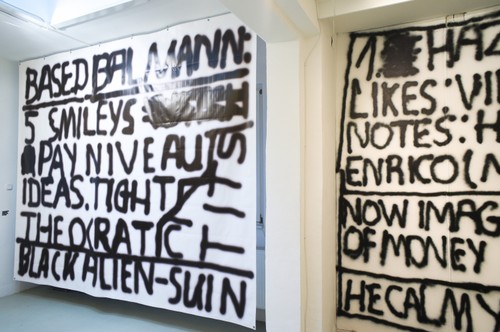 BASED BALMANN:
5 SMILEYS:
PAY NIVEAU
IDEAS. TIGHT
TITS
THEOCRATIC
BLACK ALIEN-SUIN
1. HAZ
LIKES: VI
NOTES: H
ENRICO (N
NOW IMAG
OF MONEY
HE CALMY